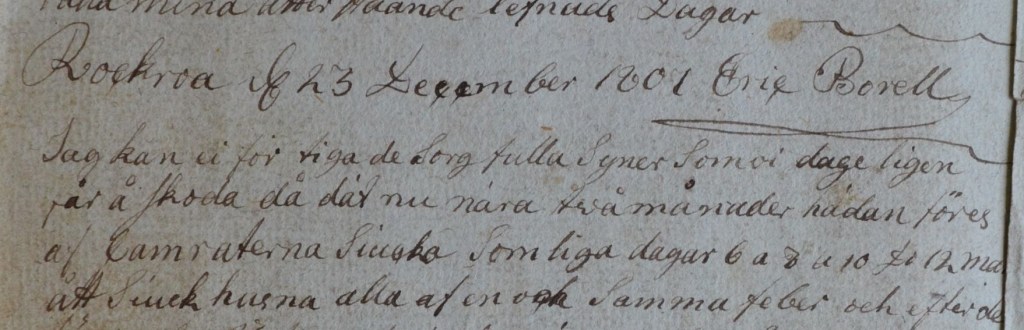 mina åtter stående lefnads Dagar
Rockroa d 23 December 1801 Eric Borell
Jag kan ei för tiga de Sorg fulla Syner Som vi dage ligen
får å skoda då dät nu nära två månader hädan föres
af Camraterna Siucka Somliga dagar 6 a 8 a 10 12
ått Siuck husna alla af en och Samma feber och efter de